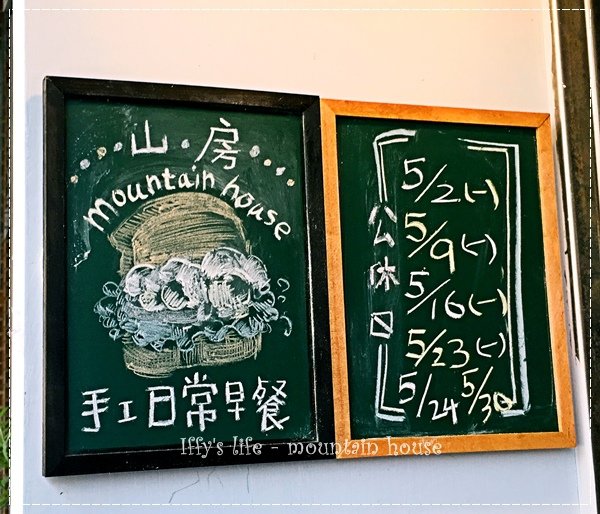 山·房
mountain house
手工日常早餐
公休日
5/2(一)
5/9(一)
5/16(一)
5/23(一)
5/24 5/30
Iffy's life - mountain house